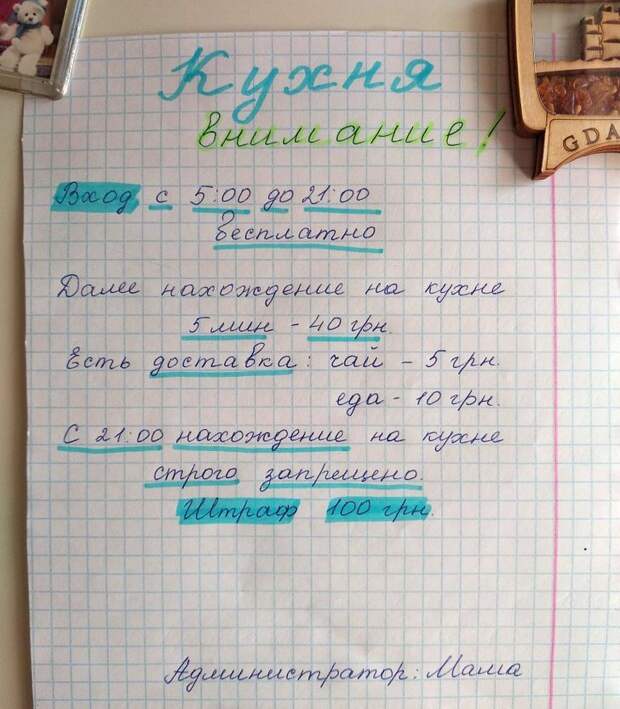 Кухня
внимание!
Вход с 5:00 до 21:00
бесплатно
Далее нахождение на кухне
5 мин - 40 грн.
Есть доставка: чай - 5 грн.
еда - 10 грн.
С 21:00 нахождение на кухне
строго запрещено.
Штраф 100 грн.
Администратор: Мама
GDA